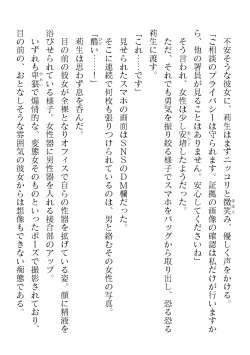 不安そうな彼女に、莉生はまずニッコリと微笑み、優しく声をかける。
「ご相談のプライバシーは守られます。証拠の画像の確認は私だけが行いますか
ら、他の署員が見ることはありません。安心してくださいね」
そう言われ、女性は少し安堵したようだった。
ただ、それでも勇気を振り絞る様子でスマホをバッグから取り出し、恐る恐る
莉生に渡す。
「これ……です」
見せられたスマホの画面はＳＮＳのＤＭ欄だった。
そこに連続で何枚も張りつけられているのは、男と絡むその女性の写真。
「酷い……！」
莉生は思わず息を呑んだ。
目の前の彼女が全裸となりオフィスで自らの性器を拡げている姿、顔に精液を
浴びせられている様子。女性器に男性器を入れる接合部のアップ。
いずれも卑猥で煽情的な、変態女そのものといったポーズで撮影されており、
目の前の、おとなしそうな雰囲気の彼女からは想像もできない痴態である。